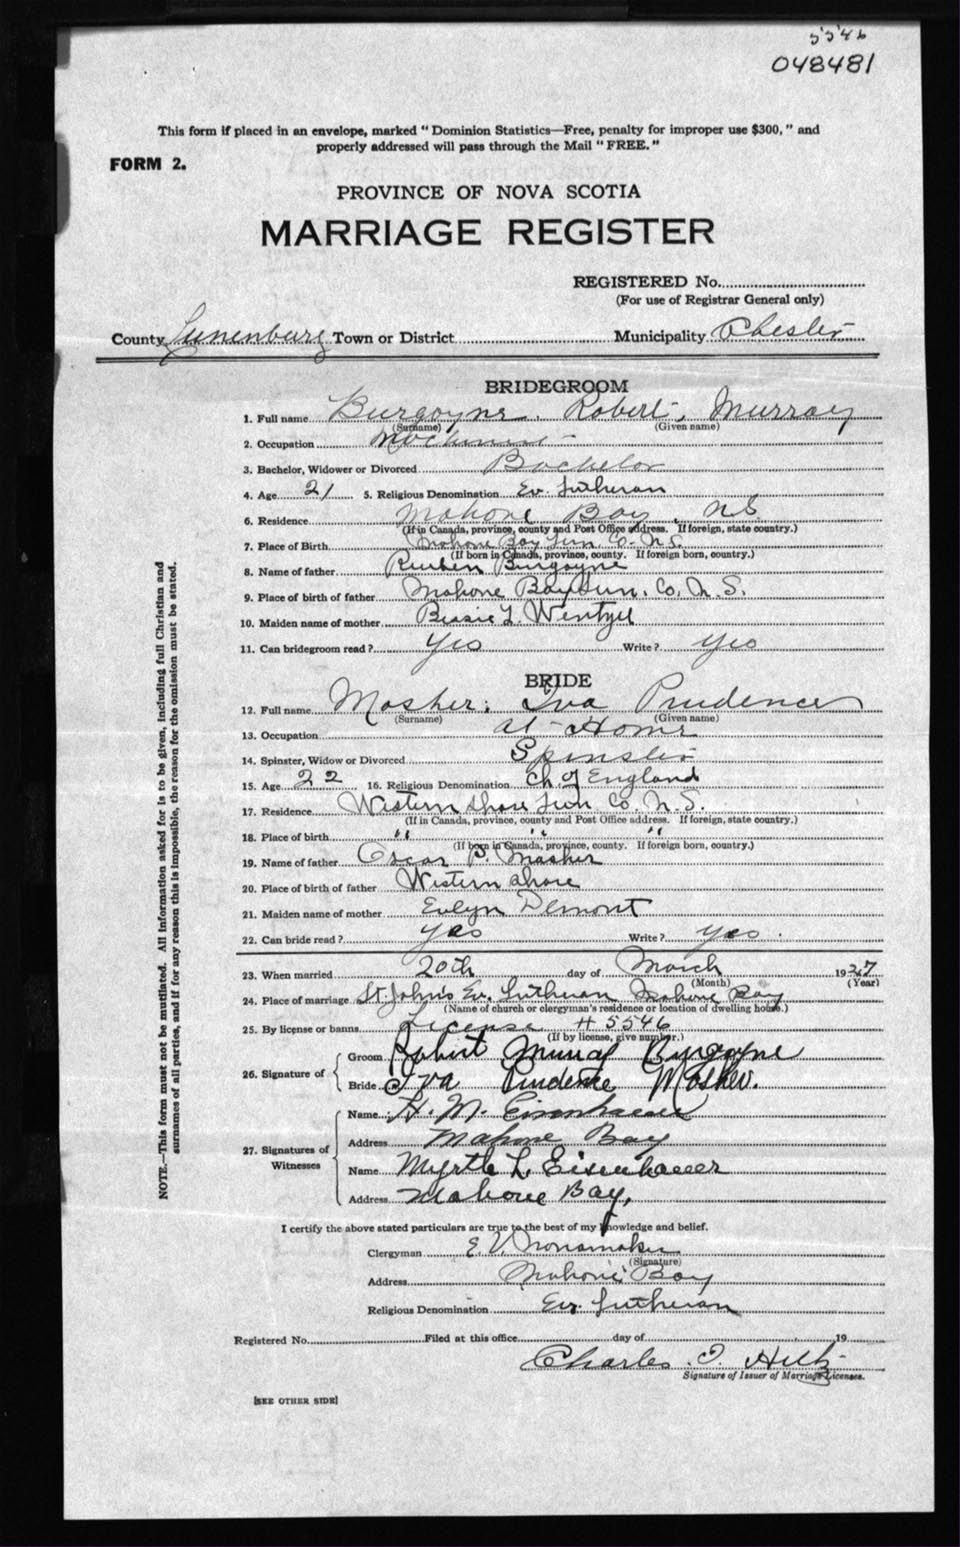 5546
048481
This form if placed in an envelope, marked "Dominion Statistics—Free, penalty for improper use $300," and
properly addressed will pass through the Mail "FREE."
FORM 2.
PROVINCE OF NOVA SCOTIA
MARRIAGE REGISTER
REGISTERED No.
(For use of Registrar General only)
County Lunenburg Town or District Municipality Chester
BRIDEGROOM
1. Full name Burgoyne, Robert, Murray
(Surname) (Given name)
2. Occupation
3. Bachelor, Widower or Divorced Bachelor
4. Age 21 5. Religious Denomination Ev. Lutheran
6. Residence Mahone Bay, N.S.
(If in Canada, province, county and Post Office address. If foreign, state country.)
7. Place of Birth Mahone Bay Lun. Co. N.S.
(If born in Canada, province, county. If foreign born, country.)
8. Name of father Reuben Burgoyne
9. Place of birth of father Mahone Bay Lun. Co. N.S.
10. Maiden name of mother Bessie L. Wentzel
11. Can bridegroom read? Yes Write? Yes
BRIDE
12. Full name Mosher, Iva Prudence
(Surname) (Given name)
13. Occupation At Home
14. Spinster, Widow or Divorced Spinster
15. Age 22 16. Religious Denomination Ch. of England
17. Residence Western Shore Lun. Co. N.S.
(If in Canada, province, county and Post Office address. If foreign, state country.)
18. Place of birth " " "
(If born in Canada, province, county. If foreign born, country.)
19. Name of father Oscar P. Mosher
20. Place of birth of father Western Shore
21. Maiden name of mother Evelyn Demont
22. Can bride read? Yes Write? Yes.
23. When married 20th day of March 1937
(Month) (Year)
24. Place of marriage St. John's Ev. Lutheran Mahone Bay
(Name of church or clergyman's residence or location of dwelling house.)
25. By license or banns License # 5546
(If by license, give number.)
26. Signature of Groom Robert Murray Burgoyne
Bride Iva Prudence Mosher.
27. Signatures of Witnesses Name H. M. Eisenhauer
Address Mahone Bay
Name Myrtle L. Eisenhauer
Address Mahone Bay,
I certify the above stated particulars are true to the best of my knowledge and belief.
Clergyman E. V. Nonamaker
(Signature)
Address Mahone Bay
Religious Denomination Ev. Lutheran
Registered No. Filed at this office day of 19
Charles O. Hiltz
Signature of Issuer of Marriage Licenses.
[SEE OTHER SIDE]
NOTE.—This form must not be mutilated. All information asked for is to be given, including full Christian and
surnames of all parties, and if for any reason this is impossible, the reason for the omission must be stated.